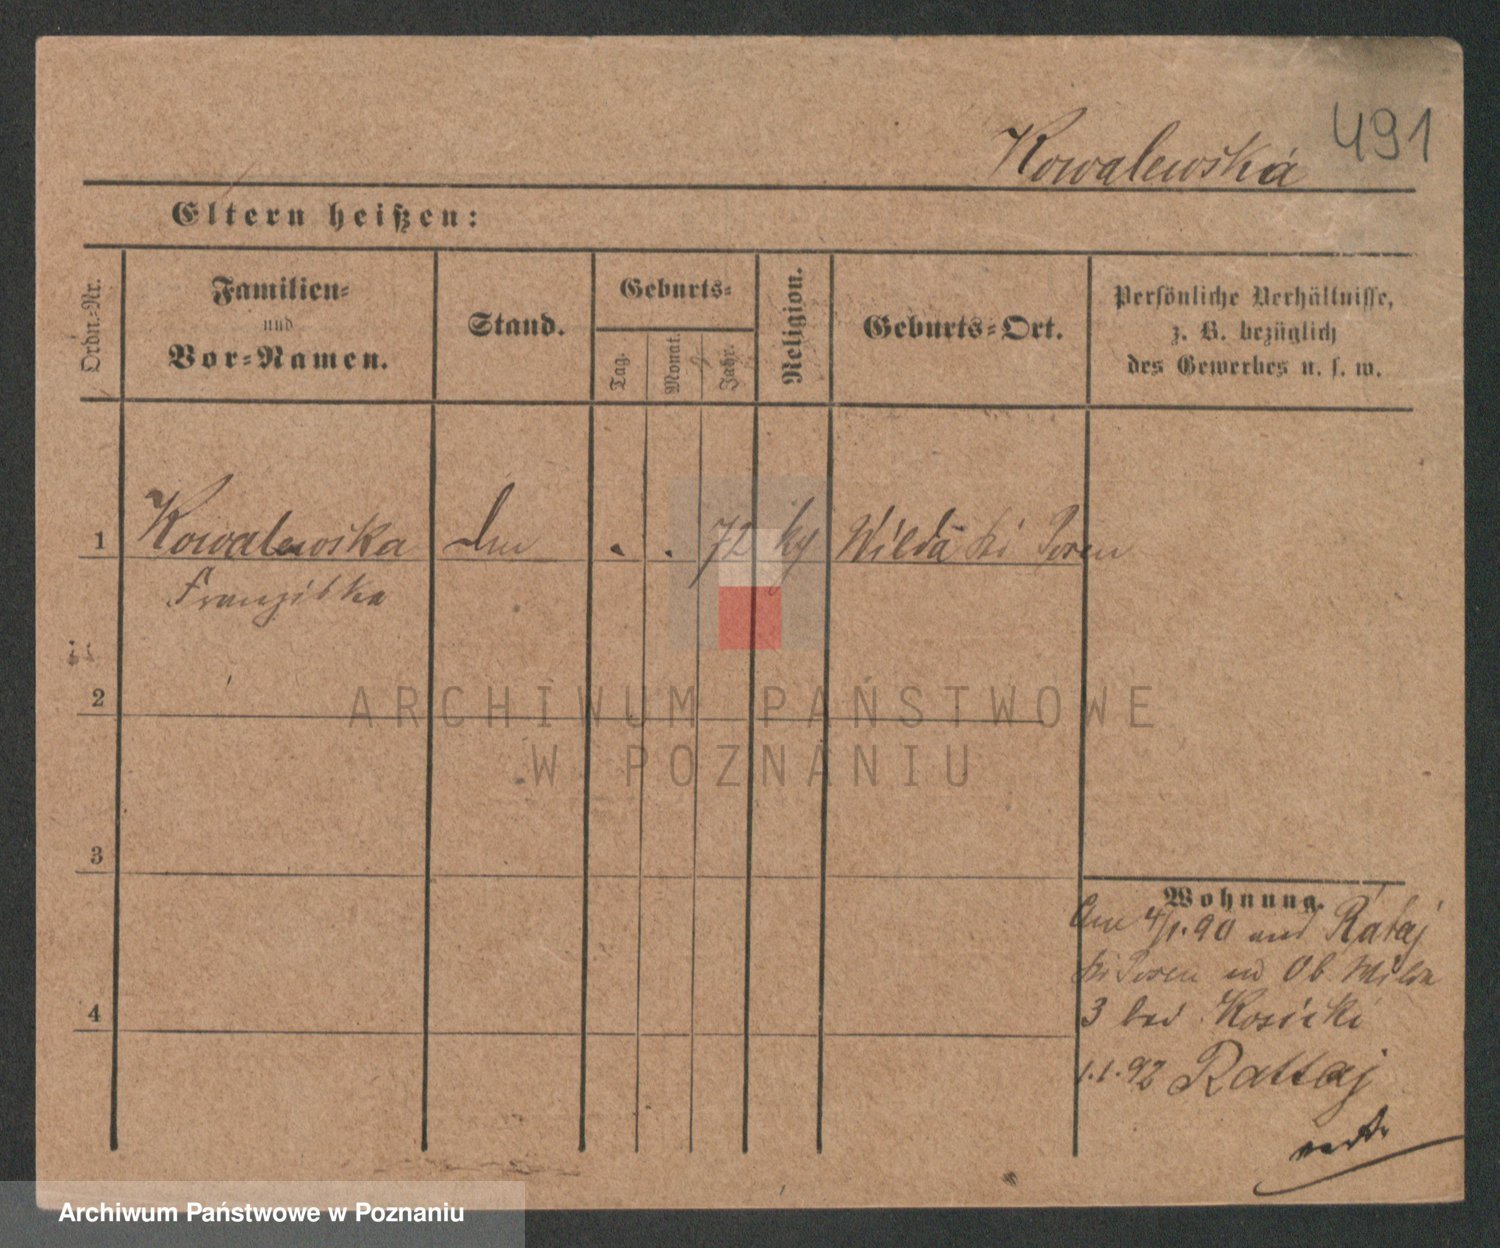 491
Kowalewska
Eltern heißen:
Ordn.-Nr.
Familien-
und
Vor-Namen.
Stand.
Geburts-
Tag.
Monat.
Jahr.
Religion.
Geburts-Ort.
Persönliche Verhältnisse,
z. B. bezüglich
des Gewerbes u. s. w.
1 Kowalewska . . 72 Wilda Posen
Franziska
2
3
4
Wohnung.
4/1.90 Rataj
Posen Ob. Wilda
3 bei Kosicki
1.1.92 Rattaj
ARCHIWUM PAŃSTWOWE
W POZNANIU
Archiwum Państwowe w Poznaniu